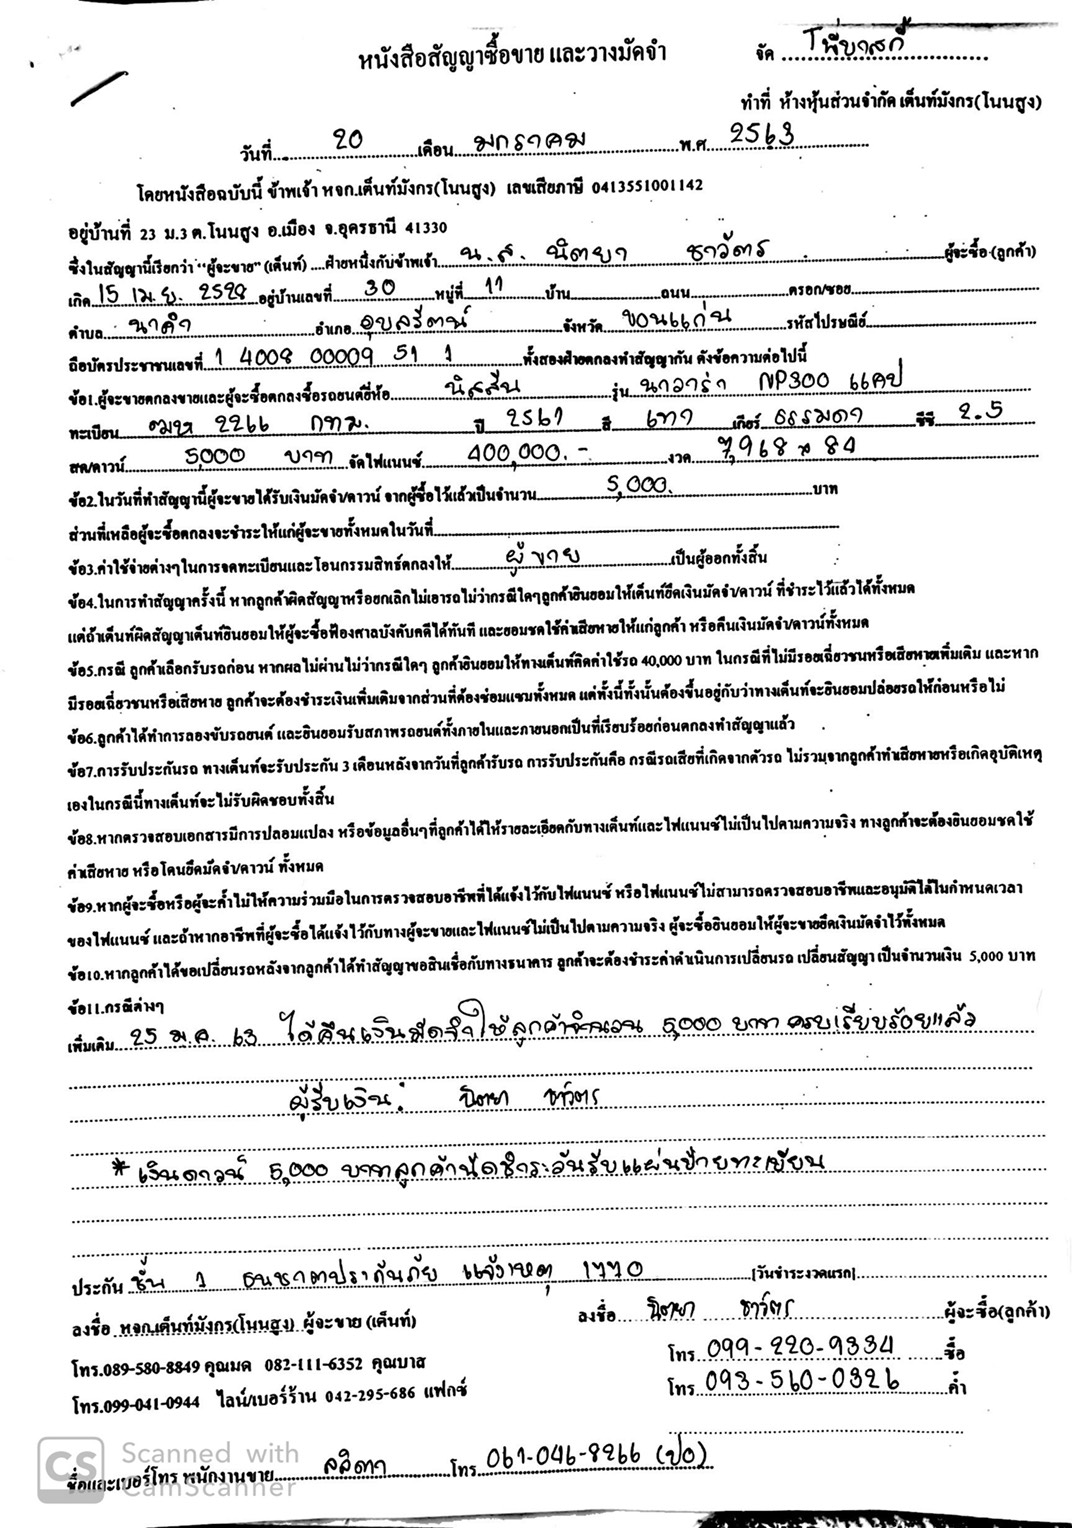 หนังสือสัญญาซื้อขาย และวางมัดจำ
จัด
ทำที่ ห้างหุ้นส่วนจำกัด เต็นท์มังกร(โนนสูง)
วันที่ 20 เดือน มกราคม พ.ศ 2563
โดยหนังสือฉบับนี้ ข้าพเจ้า หจก.เต็นท์มังกร(โนนสูง) เลขเสียภาษี 0413551001142
อยู่บ้านที่ 23 ม.3 ต.โนนสูง อ.เมือง จ.อุดรธานี 41330
ซึ่งในสัญญานี้เรียกว่า "ผู้จะขาย" (เต็นท์) ....ฝ่ายหนึ่งกับข้าพเจ้า น.ส. นิตยา ชาวัตร ผู้จะซื้อ(ลูกค้า)
เกิด 15 เม.ย. 2528 อยู่บ้านเลขที่ 30 หมู่ที่ 11 บ้าน ถนน ตรอก/ซอย
ตำบล นาคำ อำเภอ อุบลรัตน์ จังหวัด ขอนแก่น รหัสไปรษณีย์
ถือบัตรประชาชนเลขที่ 1 4008 00009 51 1 ทั้งสองฝ่ายตกลงทำสัญญากัน ดังข้อความต่อไปนี้
ข้อ1.ผู้จะขายตกลงขายและผู้จะซื้อตกลงซื้อรถยนต์ยี่ห้อ นิสสัน รุ่น นาวาร่า NP300 แคป
ทะเบียน 2266 กทม. ปี 2561 สี เทา เกียร์ ธรรมดา ซีซี 2.5
สด/ดาวน์ 5,000 บาท จัดไฟแนนซ์ 400,000.- งวด 7,968 x 84
ข้อ2.ในวันที่ทำสัญญานี้ผู้จะขายได้รับเงินมัดจำ/ดาวน์ จากผู้ซื้อไว้แล้วเป็นจำนวน 5,000. บาท
ส่วนที่เหลือผู้จะซื้อตกลงจะชำระให้แก่ผู้จะขายทั้งหมดในวันที่
ข้อ3.ค่าใช้จ่ายต่างๆในการจดทะเบียนและโอนกรรมสิทธ์ตกลงให้ ผู้ขาย เป็นผู้ออกทั้งสิ้น
ข้อ4.ในการทำสัญญาครั้งนี้ หากลูกค้าผิดสัญญาหรือยกเลิกไม่เอารถไม่ว่ากรณีใดๆลูกค้ายินยอมให้เต็นท์ยึดเงินมัดจำ/ดาวน์ ที่ชำระไว้แล้วได้ทั้งหมด
แต่ถ้าเต็นท์ผิดสัญญาเต็นท์ยินยอมให้ผู้จะซื้อฟ้องศาลบังคับคดีได้ทันที และยอมชดใช้ค่าเสียหายให้แก่ลูกค้า หรือคืนเงินมัดจำ/ดาวน์ทั้งหมด
ข้อ5.กรณี ลูกค้าเลือกรับรถก่อน หากผลไม่ผ่านไม่ว่ากรณีใดๆ ลูกค้ายินยอมให้ทางเต็นท์คิดค่าใช้รถ 40,000 บาท ในกรณีที่ไม่มีรอยเฉี่ยวชนหรือเสียหายเพิ่มเติม และหาก
มีรอยเฉี่ยวชนหรือเสียหาย ลูกค้าจะต้องชำระเงินเพิ่มเติมจากส่วนที่ต้องซ่อมแซมทั้งหมด แต่ทั้งนี้ทั้งนั้นต้องขึ้นอยู่กับว่าทางเต็นท์จะยินยอมปล่อยรถให้ก่อนหรือไม่
ข้อ6.ลูกค้าได้ทำการลองขับรถยนต์ และยินยอมรับสภาพรถยนต์ทั้งภายในและภายนอกเป็นที่เรียบร้อยก่อนตกลงทำสัญญาแล้ว
ข้อ7.การรับประกันรถ ทางเต็นท์จะรับประกัน 3 เดือนหลังจากวันที่ลูกค้ารับรถ การรับประกันคือ กรณีรถเสียที่เกิดจากตัวรถ ไม่รวมจากลูกค้าทำเสียหายหรือเกิดอุบัติเหตุ
เองในกรณีนี้ทางเต็นท์จะไม่รับผิดชอบทั้งสิ้น
ข้อ8.หากตรวจสอบเอกสารมีการปลอมแปลง หรือข้อมูลอื่นๆที่ลูกค้าได้ให้รายละเอียดกับทางเต็นท์และไฟแนนซ์ไม่เป็นไปตามความจริง ทางลูกค้าจะต้องยินยอมชดใช้
ค่าเสียหาย หรือโดนยึดมัดจำ/ดาวน์ ทั้งหมด
ข้อ9.หากผู้จะซื้อหรือผู้จะค้ำไม่ให้ความร่วมมือในการตรวจสอบอาชีพที่ได้แจ้งไว้กับไฟแนนซ์ หรือไฟแนนซ์ไม่สามารถตรวจสอบอาชีพและอนุมัติได้ในกำหนดเวลา
ของไฟแนนซ์ และถ้าหากอาชีพที่ผู้จะซื้อได้แจ้งไว้กับทางผู้จะขายและไฟแนนซ์ไม่เป็นไปตามความจริง ผู้จะซื้อยินยอมให้ผู้จะขายยึดเงินมัดจำไว้ทั้งหมด
ข้อ10.หากลูกค้าได้ขอเปลี่ยนรถหลังจากลูกค้าได้ทำสัญญาขอสินเชื่อกับทางธนาคาร ลูกค้าจะต้องชำระค่าดำเนินการเปลี่ยนรถ เปลี่ยนสัญญา เป็นจำนวนเงิน 5,000 บาท
ข้อ11.กรณีต่างๆ
เพิ่มเติม 25 ม.ค. 63 ได้คืนเงินมัดจำให้ลูกค้าจำนวน 5,000 บาท ครบเรียบร้อยแล้ว
ผู้รับเงิน: นิตยา ชาวัตร
* เงินดาวน์ 5,000 บาทลูกค้านัดชำระวันรับแผ่นป้ายทะเบียน
ประกัน ชั้น 1 ธนชาตประกันภัย แจ้งเหตุ 1770 [วันชำระงวดแรก]
ลงชื่อ หจก.เต็นท์มังกร(โนนสูง) ผู้จะขาย (เต็นท์) ลงชื่อ นิตยา ชาวัตร ผู้จะซื้อ(ลูกค้า)
โทร.089-580-8849 คุณมด 082-111-6352 คุณบาส โทร 099-220-9334 ซื้อ
โทร.099-041-0944 ไลน์/เบอร์ร้าน 042-295-686 แฟกซ์ โทร 093-560-0326 ค้ำ
ชื่อและเบอร์โทร พนักงานขาย ลลิตา โทร 061-046-8266 (ปอ)
CS Scanned with
CamScanner